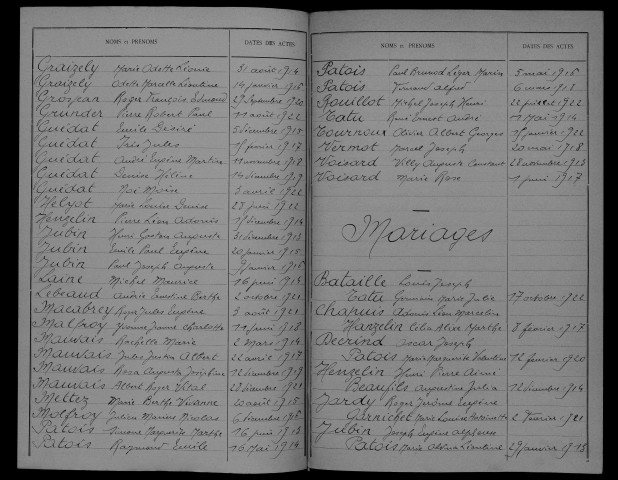 NOMS et PRÉNOMS DATES DES ACTES
Graizely Marie Odette Léonie 31 août 1914
Graizely Odette Marcelle Léontine 14 janvier 1916
Grosjean Roger François Edmond 27 Septembre 1920
Grunder Pierre Robert Paul 11 août 1922
Guédat Emile Désiré 5 décembre 1915
Guédat Jules 1 février 1917
Guédat André Eugène 11 novembre 1918
Guédat Denise Hélène 14 décembre 1919
Guédat 3 avril 1922
Hélyot Marie Louise Denise 23 juin 1922
Henzelin Pierre Léon 1 décembre 1914
Jubin Henri Gustave Auguste 31 décembre 1913
Jubin Emile Paul Eugène 20 janvier 1915
Jubin Paul Joseph Auguste 9 janvier 1916
Laine Michel Maurice 16 juin 1914
Lebeaud Berthe 2 octobre 1921
Macabrey Jules Eugène 3 août 1921
Malfroy Yvonne Jeanne Charlotte 11 juin 1918
Mauvais Rachelle Marie 2 Mars 1914
Mauvais Jules Justin Albert 22 avril 1917
Mauvais Rosa Augusta Joséphine 12 décembre 1917
Mauvais Albert Roger Vital 28 décembre 1921
Mettez Marie Berthe 20 août 1915
Molfroy Julien Marius Nicolas 6 décembre 1915
Patois Simone Marguerite Marthe 16 juin 1913
Patois Raymond Emile 16 Mai 1914
NOMS et PRÉNOMS DATES DES ACTES
Patois Paul Léger 5 mai 1916
Patois Fernand Alfred 6 1918
Rouillot Michel Joseph Henri 22 juillet 1922
Tatu René Ernest André 11 Mai 1914
Tournoux Olivier Albert Georges 15 janvier 1922
Vermot Marcel Joseph 20 mai 1918
Voisard Willy Auguste Constant 28 1913
Voisard Marie Rose 1 juin 1917
Mariages
Bataille Louis Joseph
Tatu Germaine Marie Julie 17 octobre 1922
Chatuis Léon Marcelin
Hanzelin Célia Alice Marthe 8 février 1917
Oscar Joseph
Patois Marie Marguerite Valentine 12 février 1920
Henzelin Henri Pierre Aimé
Beaufils Augustine Julia 12 décembre 1914
Jardy Roger Jérôme Eugène
Garnichet Marie Louise Antoinette 2 Février 1921
Jubin Joseph Eugène Alphonse
Patois Marie Léontine 29 janvier 1913